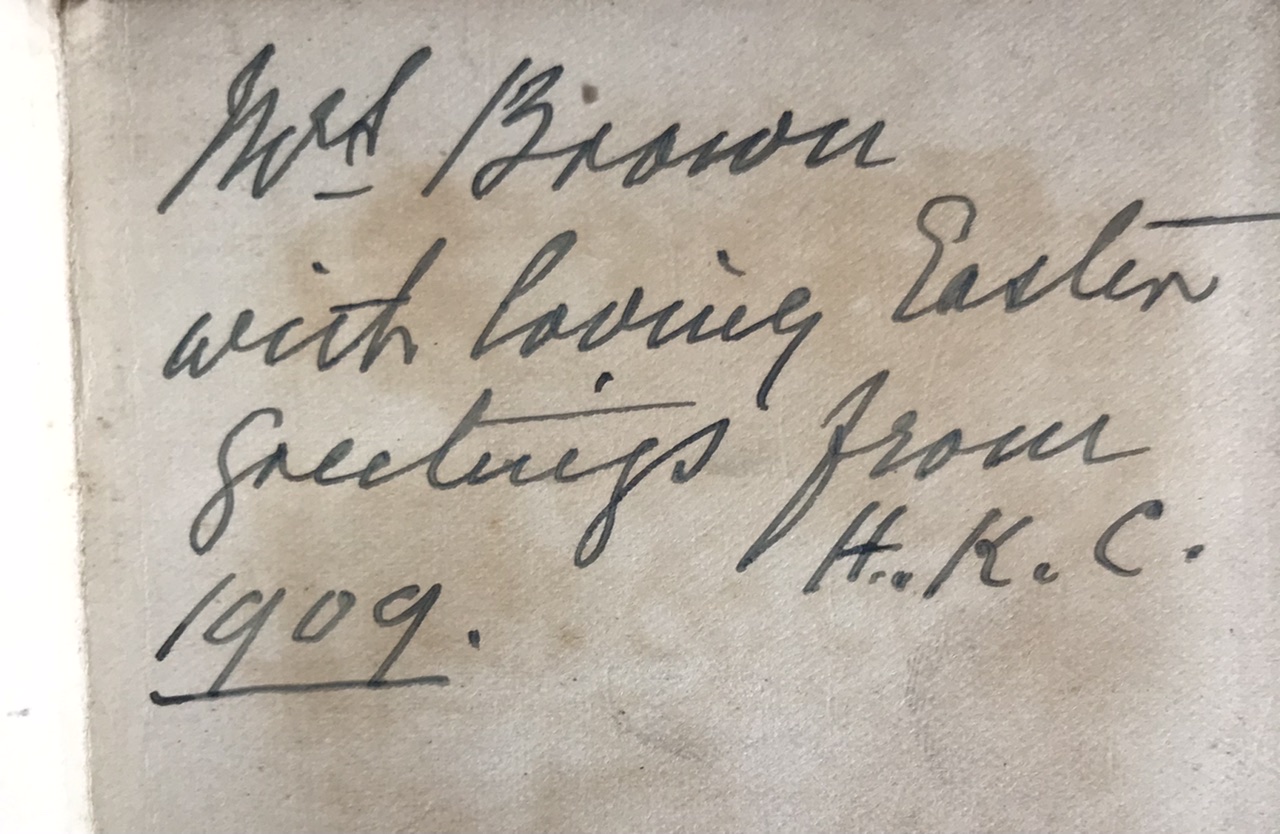 Mrs Brown
with loving Easter
greetings from
H. K. C.
1909.